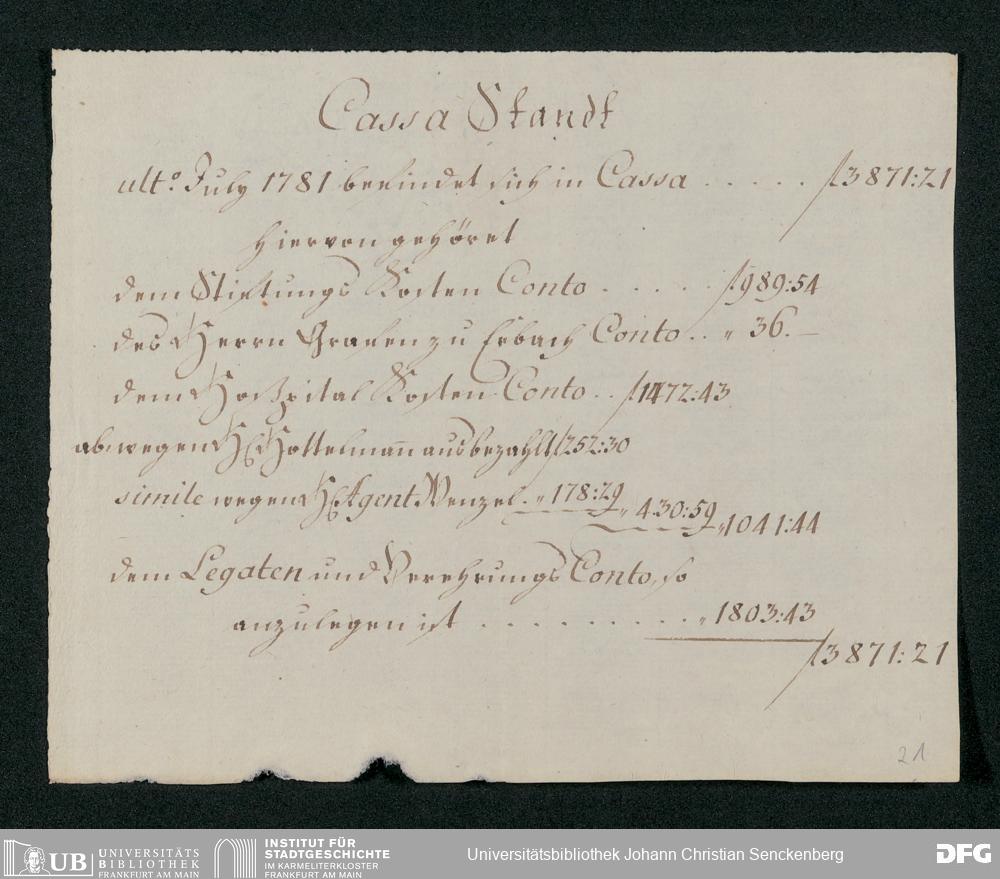 Cassa Standt
ult.o July 1781 befindet sich in Cassa . . . . . f 3871:21
hiervon gehöret
dem Stiftungs Kosten Conto . . . . . f 989:54
des Herrn Grafen zu Erbach Conto . . " 36. —
dem Hoszpital Kosten Conto . . f 1472:43
ab wegen H. Hottelman̄ ausbezahlt f 252:30
simile wegen H. Agent Wenzel . . " 178:29 " 430:59 " 1041:44
dem Legaten und Verehrungs Conto, so
anzulegen ist . . . . . . . . . . " 1803:43
f 3871:21
21
UB UNIVERSITÄTS
BIBLIOTHEK
FRANKFURT AM MAIN
INSTITUT FÜR
STADTGESCHICHTE
IM KARMELITERKLOSTER
FRANKFURT AM MAIN
Universitätsbibliothek Johann Christian Senckenberg
DFG